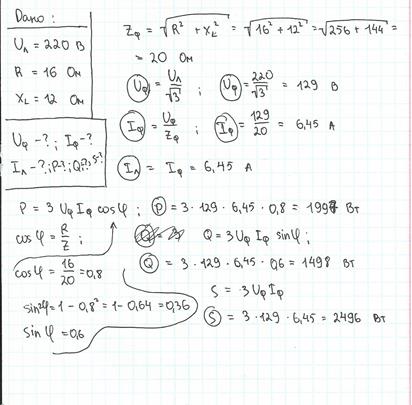 Дано:
U_Л = 220 В
R = 16 Ом
X_L = 12 Ом
U_Ф -? ; I_Ф -?
I_Л -?; P-?; Q-?; S-?
Z_Ф = √(R² + X_L²) = √(16² + 12²) = √(256 + 144) =
= 20 Ом
U_Ф = U_Л/√3 ; U_Ф = 220/√3 = 129 В
I_Ф = U_Ф/Z_Ф ; I_Ф = 129/20 = 6,45 А
I_Л = I_Ф = 6,45 А
P = 3 U_Ф I_Ф cos φ ; P = 3 · 129 · 6,45 · 0,8 = 1997 Вт
cos φ = R/Z ;
Q = 3 U_Ф I_Ф sin φ ;
cos φ = 16/20 = 0,8
Q = 3 · 129 · 6,45 · 0,6 = 1498 Вт
sin²φ = 1 - 0,8² = 1 - 0,64 = 0,36
sin φ = 0,6
S = 3 U_Ф I_Ф
S = 3 · 129 · 6,45 = 2496 Вт